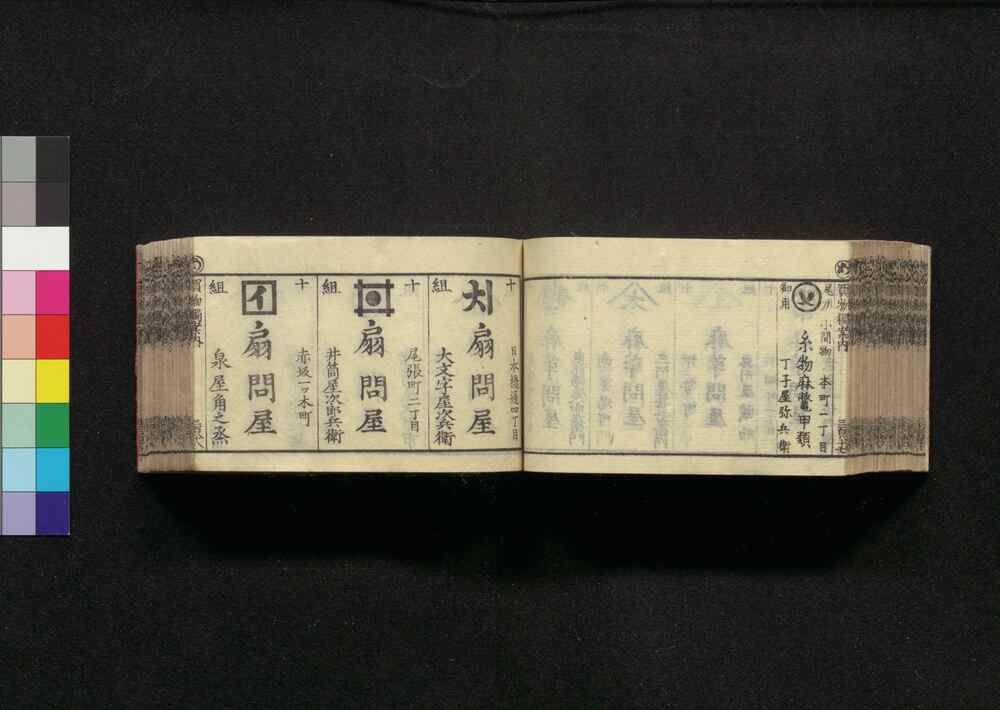 小間物
本町二丁目
御用
糸物麻鼈甲類
丁子屋弥兵衛
十
組
日本橋通四丁目
扇問屋
大文字屋次兵衛
十
組
尾張町二丁目
扇問屋
井筒屋次郎兵衛
十
組
赤坂一ツ木町
イ
扇問屋
泉屋角之烝